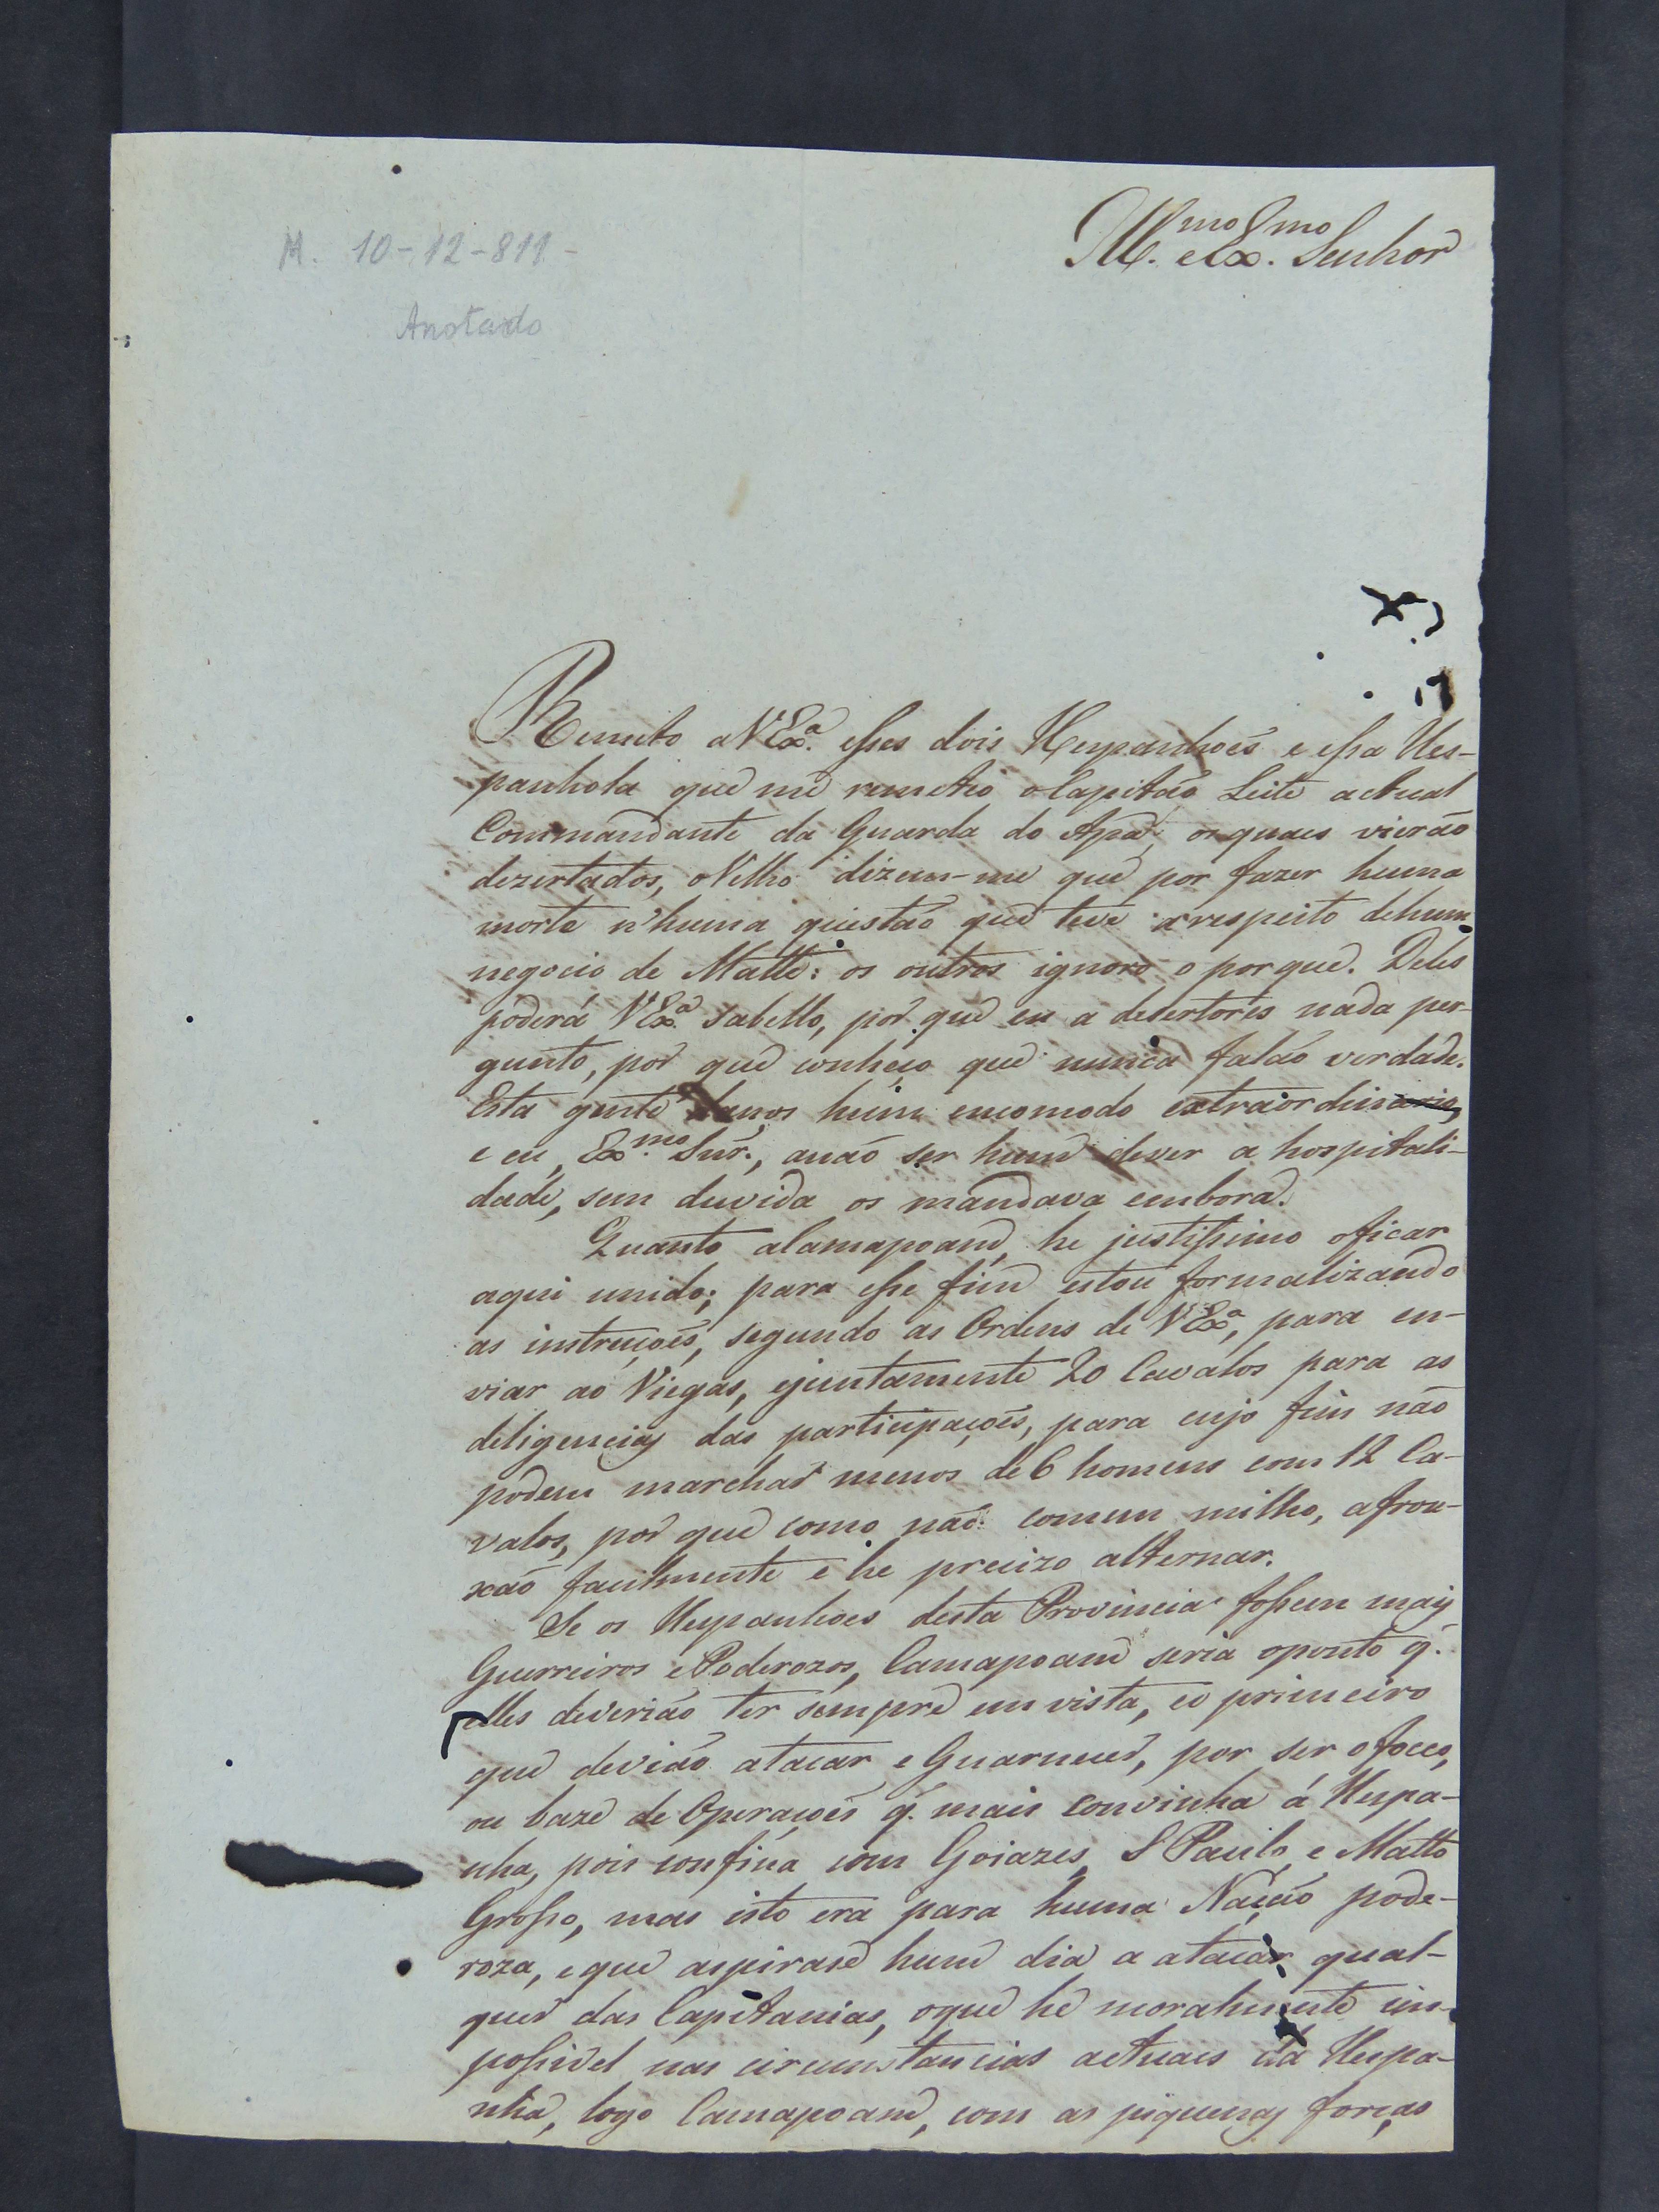 M. 10-12-811-
Anotado
Ill.mo e Ex.mo Senhor
Remeto a V Ex.ª esses dois Hespanhoes e essa Hes-
panhola que me remetio o Capitão Leite actual
Commandante da Guarda do Apa, os quaes vierão
dezertados, o Velho dizem-me que por fazer huma
morte n'huma questão que teve a respeito de hum
negocio de Matte: os outros ignoro o porque. Deles
poderá V Ex.ª sabello, por que eu a desertores nada per-
gunto, por que conheço que nunca falão verdade.
Esta gente danos hum encomodo extraordinario,
e eu, Ex.mo Snr., anão ser hum dever a hospitali-
dade, sem duvida os mandava embora.
Quanto a Camapoam, he justissimo oficar
aqui unido; para esse fim estou formalizando
as instruçoes, segundo as Ordens de V Ex.ª, para en-
viar ao Viegas, ejuntamente 20 Cavalos para as
deligencias das participaçoes, para cujo fim não
podem marchar menos de 6 homens com 12 Ca-
valos, por que como não comem milho, afrou-
xão facilmente e he precizo alternar.
Se os Hespanhoes desta Provincia fossem mais
Guerreiros e Poderozos, Camapoam seria oponto q.
elles deverião ter sempre em vista, eo primeiro
que devião atacar e Guarnecer, por ser ofoco,
ou baze de Operaçoes q. mais convinha á Hespa-
nha, pois confina com Goiazes, S Paulo e Matto
Grosso, mas isto era para huma Nação pode-
roza, e que aspirase hum dia a atacar qual-
quer das Capitanias, oque he moralmente im-
possivel nas circunstancias actuaes da Hespa-
nha, logo Camapoam, com as piquenas forças